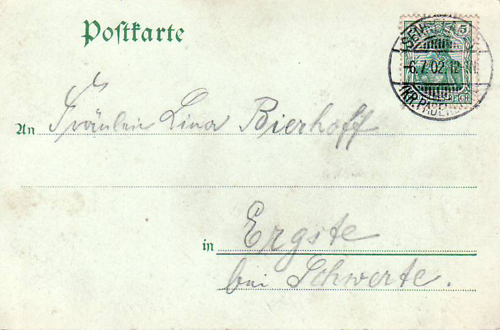 Postkarte
5
-6.7.02.12
An Fräulein Lina Bierhoff
in Ergste
bei Schwerte.